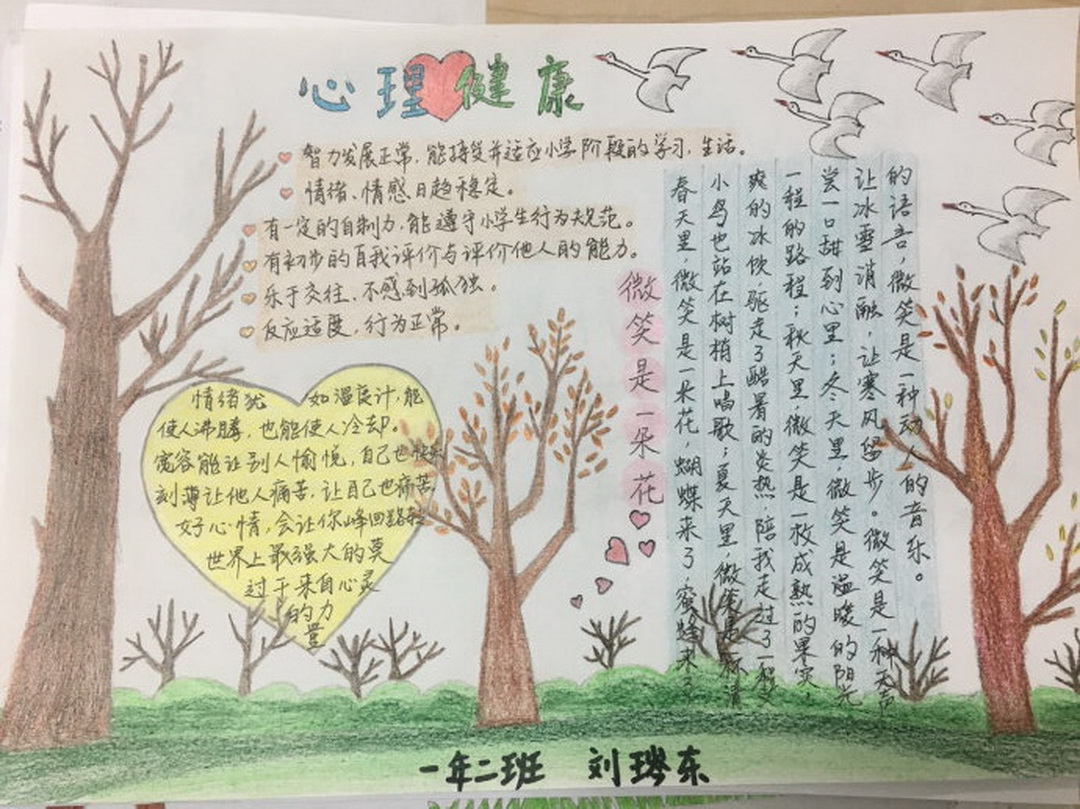 心理健康
智力发展正常,能接受并适应小学阶段的学习,生活。
情绪、情感日趋稳定。
有一定的自制力,能遵守小学生行为规范。
有初步的自我评价与评价他人的能力。
乐于交往,不感到孤独。
反应适度,行为正常。
情绪犹 如温度计,能
使人沸腾,也能使人冷却。
宽容能让别人愉悦,自己也快
刻薄让他人痛苦,让自己也痛苦
好心情,会让你峰回路转
世界上最强大的莫
过于来自心灵
的力
量
微笑是一朵花
春天里,微笑是一朵花,蝴蝶来了,蜜蜂来了
小鸟也站在树梢上唱歌;夏天里,微笑是一杯清
爽的冰饮,驱走了酷暑的炎热,陪我走过了一程又
一程的路程;秋天里,微笑是一枚成熟的果实,
尝一口甜到心里;冬天里,微笑是温暖的阳光
让冰雪消融,让寒风留步。微笑是一种无声
的语言,微笑是一种动人的音乐。
一年二班 刘 东